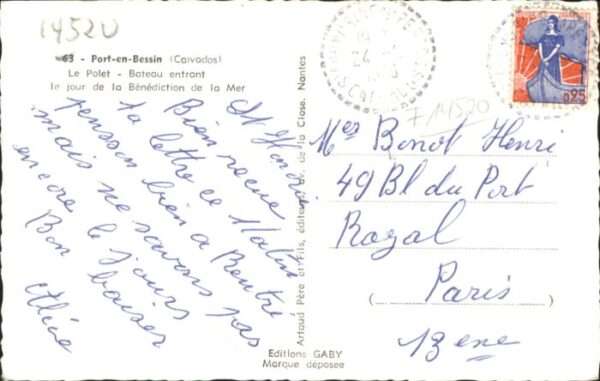 14520
63 - Port-en-Bessin (Calvados)
Le Polet - Bateau entrant
le jour de la Bénédiction de la Mer
St Honorine
Bien recue
ta lettre ce Matin
penson bien a Rentré
mais ne savons pas
encore le jours
Bon baiser
Artaud Père et Fils, éditeurs, av. de la Close, Nantes
Editions GABY
Marque déposée
0,25
F 14520
Mer Benot Henri
49 Bl du Port
Royal
Paris
13 eme